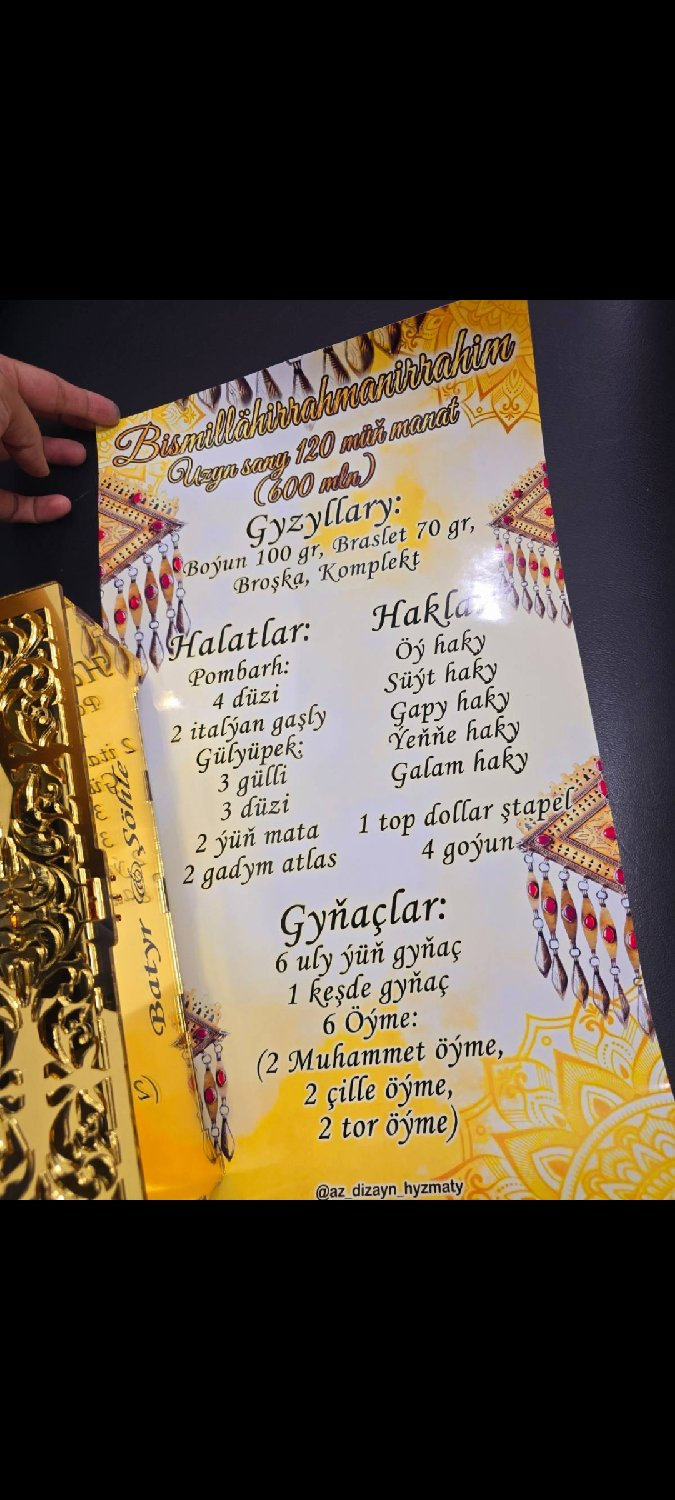 Bismillähirrahmanirrahim
Uzyn sany 120 müň manat
(600 mln)
Gyzyllary:
Boýun 100 gr, Braslet 70 gr,
Broşka, Komplekt
Halatlar:
Pombarh:
4 düzi
2 italýan gaşly
Gülyüpek:
3 gülli
3 düzi
2 ýüň mata
2 gadym atlas
Öý haky
Süýt haky
Gapy haky
Ýeňňe haky
Galam haky
1 top dollar ştapel
4 goýun
Gyňaçlar:
6 uly ýüň gyňaç
1 keşde gyňaç
6 Öýme:
(2 Muhammet öýme,
2 çille öýme,
2 tor öýme)
@az_dizayn_hyzmaty
Batyr @ Söhle